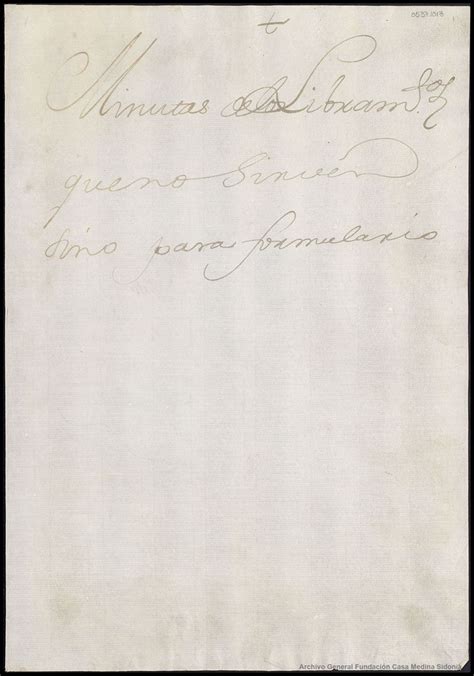 0551.1013
Minutas de Libram.tos
que no sirven
sino para formulario
Archivo General Fundación Casa Medina Sidonia